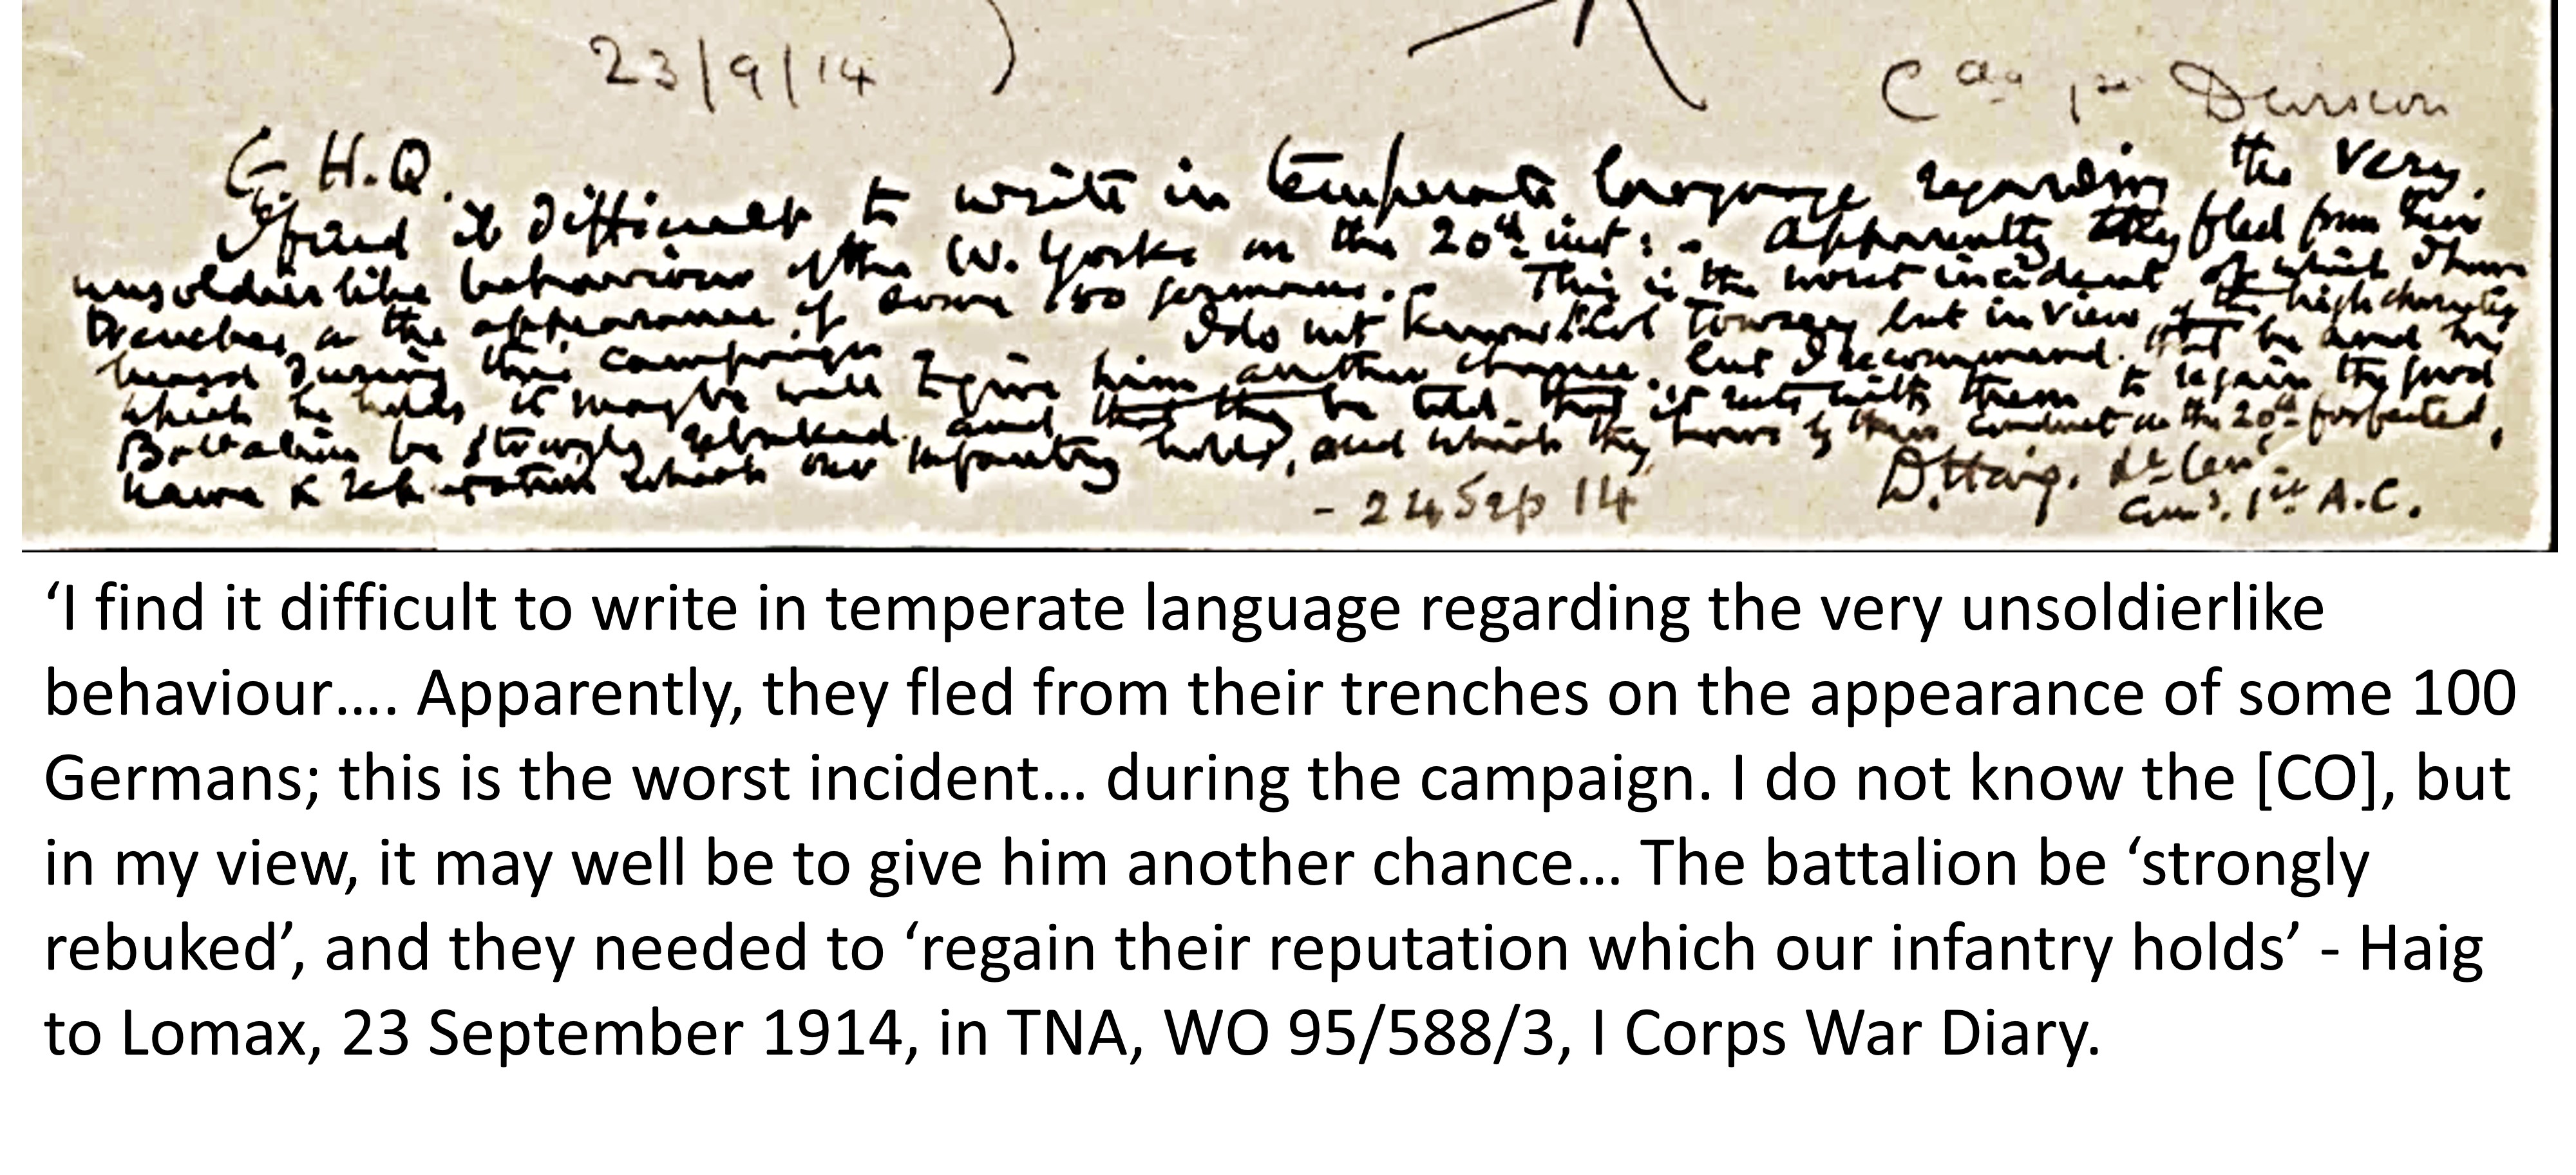 23/9/14 )
Cdg 1st Division
G.H.Q.
I find it difficult to write in temperate language regarding the very
unsoldierlike behaviour of the W. Yorks on the 20th inst: - Apparently they fled from their
trenches on the appearance of some 100 Germans. - This is the worst incident of which I have
heard during this campaign I do not know Col Towsey but in view of the high character
which he holds it may be well to give him another chance. but I recommend that he and his
Battalion be strongly rebuked and that they be told that it rests with them to regain the good
name & reputation which our infantry holds, and which they have by their conduct on the 20th forfeited,
- 24 Sep 14
D. Haig. Lt Gen
Comg. 1st A.C.
‘I find it difficult to write in temperate language regarding the very unsoldierlike
behaviour…. Apparently, they fled from their trenches on the appearance of some 100
Germans; this is the worst incident… during the campaign. I do not know the [CO], but
in my view, it may well be to give him another chance… The battalion be ‘strongly
rebuked’, and they needed to ‘regain their reputation which our infantry holds’ - Haig
to Lomax, 23 September 1914, in TNA, WO 95/588/3, I Corps War Diary.